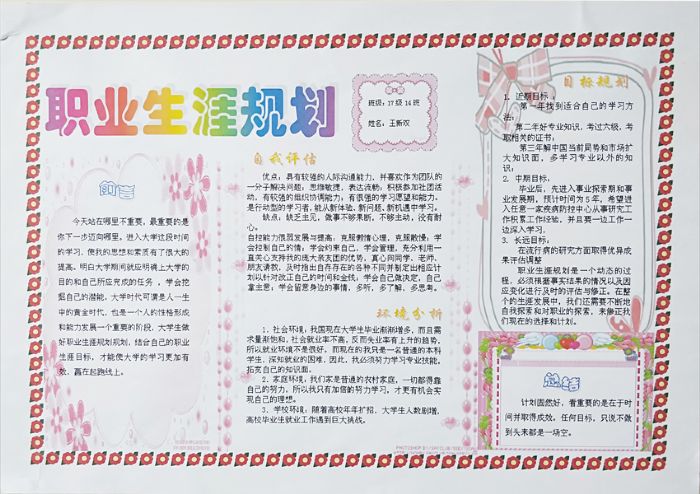 职业生涯规划
班级：17级14班
姓名：王新双
前言
今天站在哪里不重要，最重要的是
你下一步迈向哪里。进入大学这段时间
的学习，使我的思想和素质有了很大的
提高。明白大学期间就应明确上大学的
目的和自己所应完成的任务，学会挖
掘自己的潜能。大学时代可谓是人一生
中的黄金时代，也是一个人的性格形成
和能力发展一个重要的阶段。大学生做
好职业生涯规划规划，结合自己的职业
生涯目标，才能使大学的学习更加有
效，赢在起跑线上。
自我评估
优点：具有较强的人际沟通能力，并喜欢作为团队的
一分子解决问题；思维敏捷，表达流畅；积极参加社团活
动，有较强的组织协调能力；有很强的学习愿望和能力，
是行动型的学习者，能从新体验、新问题、新机遇中学习。
缺点：缺乏主见，做事不够果断，不够主动，没有耐
心。
自控能力很照发展与提高：克服懒惰心理，克服散慢；学
会控制自己的情；学会约束自己，学会管理。充分利用一
直关心支持我的庞大亲友团的优势，真心向同学、老师、
朋友请教，及时指出自存存在的各种不同并制定出相应计
划以针对改正自己的时间和金钱；学会自己做决定，自己
拿主意；学会留意身边的事情，多听，多了解，多思考。
环境分析
1．社会环境：我国现在大学生毕业渐渐增多，而且需
求量渐饱和，社会就业率不高，反而失业率有上升的趋势，
所以就业环境不是很好。而现在的我只是一名普通的本科
学生，深知就业的困难，因此，我必须努力学习专业技能，
拓宽自己的知识面。
2．家庭环境：我们家是普通的农村家庭，一切都得靠
自己的努力，所以我只有加倍的努力学习，才更有机会实
现自己的理想。
3．学校环境：随着高校年年扩招，大学生人数剧增，
高校毕业生就业工作遇到巨大挑战。
目标规划
1．近期目标：
第一年找到适合自己的学习方
法；
第二年好专业知识，考过六级，考
取相关的证书；
第三年解中国当前同势和市场扩
大知识面，多学习专业以外的知
识；
2．中期目标：
毕业后，先进入事业探索期和事
业发展期，预计时间为5年，希望进
入任意一家疾病防控中心从事研究工
作积累工作经验，并且要一边工作一
边深入学习。
3．长远目标：
在流行病的研究方面取得优异成
果评估调整
职业生涯规划是一个动态的过
程，必须根据事实结果的情况以及因
应变化进行及时的评估与修正。在整
个的生涯发展中，我们还需要不断地
自我探索和对职业的探索，来修正我
们现在的选择和计划。
总结
计划固然好，看重要的是在于时
间并取得成效。任何目标，只说不做
到头来都是一场空。